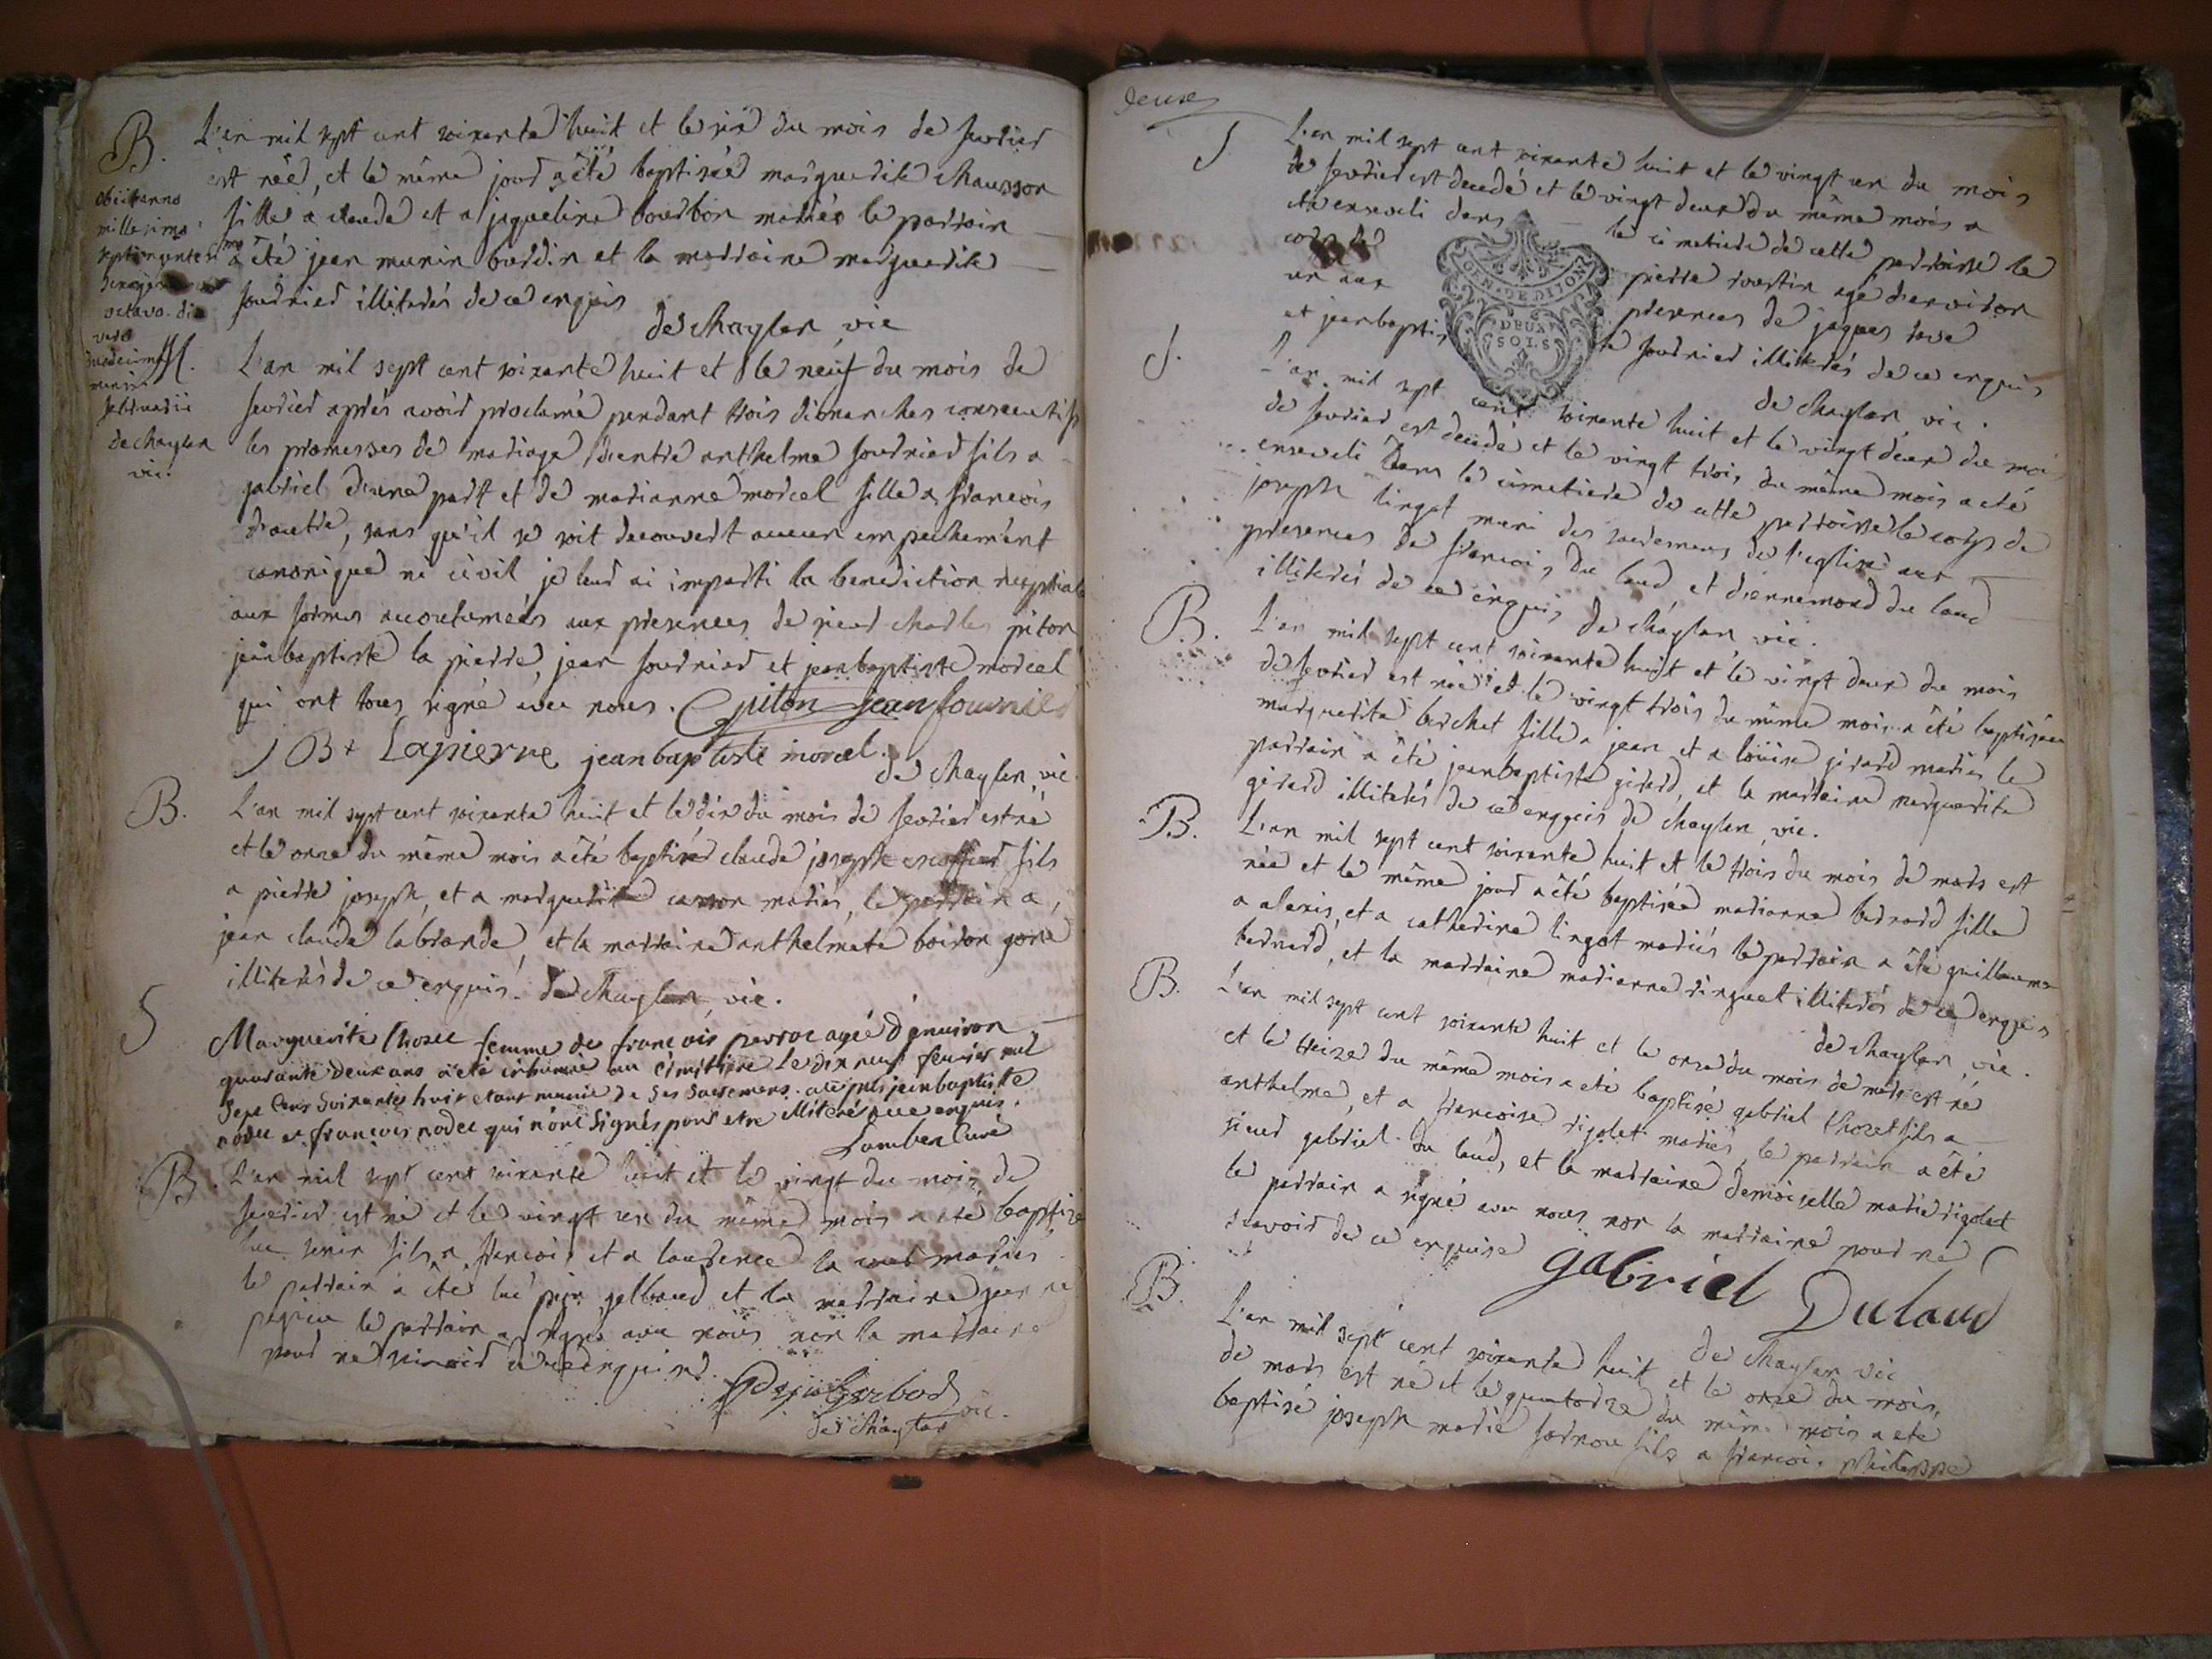 B. L'an mil sept cent soixante huit et le six du mois de fevrier
est née, et le même jour a été baptisée marguerite chausson
fille a claude et a jaqueline bourbon mariés le parrain
a été jean munin burdin et la marraine marguerite
fournier illiterés de ce enquis
de chaylan vic
obiit anno
millesimo
septingentes
mo
octavo die
vero
duodecima
mensis
februarii
de chaylan
vic.
M. L'an mil sept cent soixante huit et le neuf du mois de
fevrier aprés avoir proclamé pendant trois dimanches consecutifs
les promesses de mariage d'entre anthelme fournier fils a
gabriel d'une part et de marianne morcel fille a francois
d'autre, sans qu'il se soit decouvert aucun empechement
canonique ni civil je leur ai imparti la benediction nuptiale
aux formes accoutumées aux presences de sieur charles piton
jean baptiste la pierre, jean fournier et jean baptiste morcel
qui ont tous signé avec nous. C piton jean fournier
J B+ Lapierre jean baptiste morcel.
de chaylan, vic
B. L'an mil sept cent soixante huit et le dix du mois de fevrier est né
et le onze du même mois a été baptisé claude joseph escoffier fils
a pierre joseph, et a marguerite carron mariés, le parrain a,
jean claude labrande, et la marraine anthelmete boiron gone
illiterés de ce enquis. de chaylan, vic.
S Marguerite Thozee femme de francois perroc agée d'environ
quarante deux ans a eté inhumée au cimitiere le dix neuf fevrier mil
sept cens soixantes huit etant munie de ses sacremens. aux pnces jean baptiste
nodee et francois nodee qui n'ont signés pour etre illiterés de ce enquis.
Lamber Curé
B. L'an mil sept cent soixante huit et le vingt du mois de
fevrier est né et le vingt un du même mois a eté baptisé
luc fils a francois et a laurence la cour mariés
le parrain a été luc gelboud et la marraine jeanne
le parrain a signé avec nous non la marraine
pour ne scavoir de ce enquise
de chaylan vic.
deux
S L'an mil sept cent soixante huit et le vingt un du mois
de fevrier est decedé et le vingt deux du même mois a
été enseveli dans le cimetiere de cette parroisse le
corps de pierre roustin agé d'environ
un aux presences de jaques
et jean baptiste fournier illiterés de ce enquis
GEN. DE DIJON
DEUX
SOLS
de chaylan, vic.
S. L'an mil sept cent soixante huit et le vingt deux du moi
de fevrier est decedé et le vingt trois du même mois a eté
enseveli dans le cimetiere de cette parroisse le corps de
joseph lingot muni des sacremens de l'eglise aux
presences de francois du laud, et d'ennemond du laud
illiterés de ce enquis de chaylan, vic.
B. L'an mil sept cent soixante huit et le vingt deux du mois
de fevrier est née et le vingt trois du même mois a été baptisée
marguerite berchet fille a jean et a louise girard mariés le
parrain a été jean baptiste girard, et la marraine marguerite
girard illiterés de ce enquis de chaylan, vic.
B. L'an mil sept cent soixante huit et le trois du mois de mars est
née et le même jour a été baptisée marianne bernard fille
a alexis, et a catherine lingot mariés le parrain a été guillaume
bernard, et la marraine marianne ringuet illiterés de ce enquis
de chaylan, vic.
B. L'an mil sept cent soixante huit et le onze du mois de mars est né
et le treize du même mois a eté baptisé gabriel Thozet fils a
anthelme, et a francoise rigolet mariés, le parrain a été
sieur gabriel du laud, et la marraine demoiselle marie rigolet
le parrain a signé avec nous non la marraine pour ne
scavoir de ce enquise
gabriel Dulaud
de chaylan vic
B. L'an mil sept cent soixante huit et le onze du mois
de mars est né et le quatorze du même mois a eté
baptisé joseph marie fornon fils a francois philippe